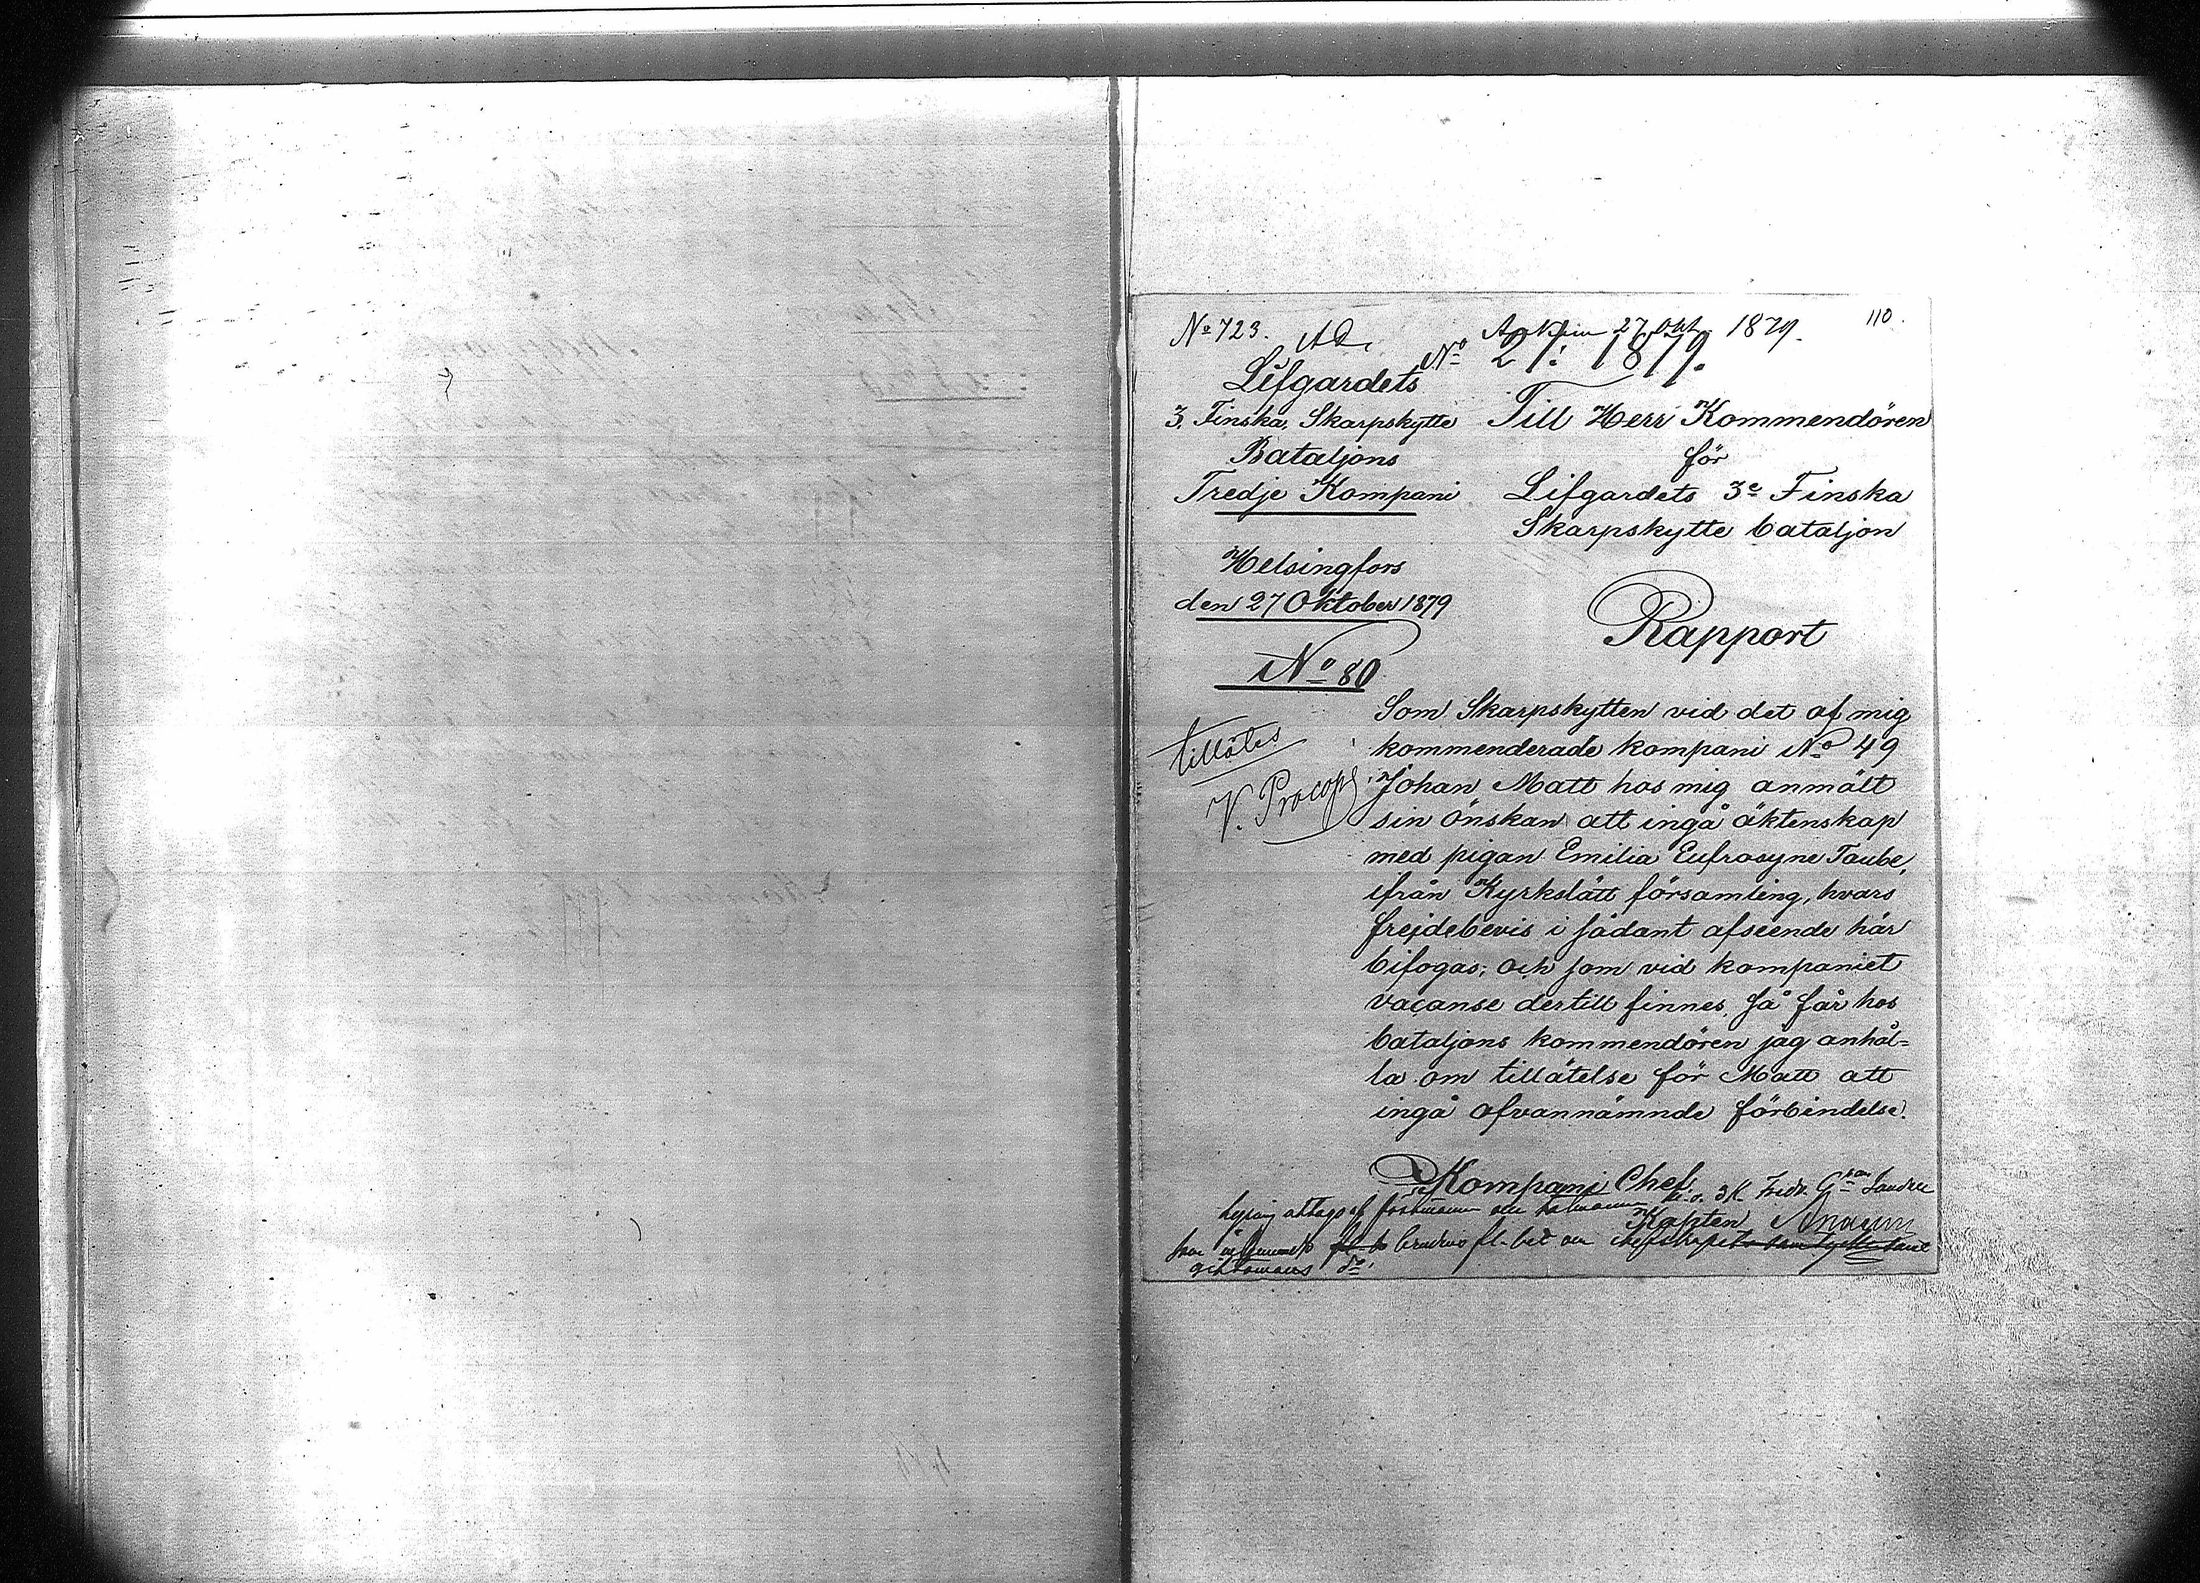 110.
No 723. Ad.
Ank. den 27 Okt. 1879.
No 21: 1879.
Lifgardets
3. Finska, Skarpskytte
Bataljons
Tredje Kompani
Helsingfors
den 27 Oktober 1879
No 80
Till Herr Kommendören
för
Lifgardets 3e Finska
Skarpskytte bataljon
Rapport
tillåtes
V. Procopé
Som Skarpskytten vid det af mig
kommenderade kompani No 49
Johan Matt hos mig anmält
sin önskan att ingå äktenskap
med pigan Emilia Eufrosyne Taube,
ifrån Kyrkslätt församling, hvars
frejdebevis i sådant afseende här
bifogas; och som vid kompaniet
vacanse dertill finnes, så får hos
bataljons kommendören jag anhål=
la om tillåtelse för Matt att
ingå ofvannämnde förbindelse.
Kompani Chef
Kapten